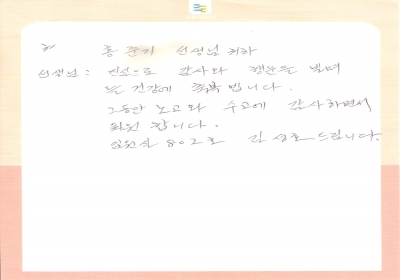 홍준기 선생님 귀하
선생님: 진심으로 감사와 행운을 빌며
늘 건강에 축복 빕니다.
그동안 노고와 수고에 감사하면서
퇴원 합니다.
입원실 802호 김성호 드립니다.